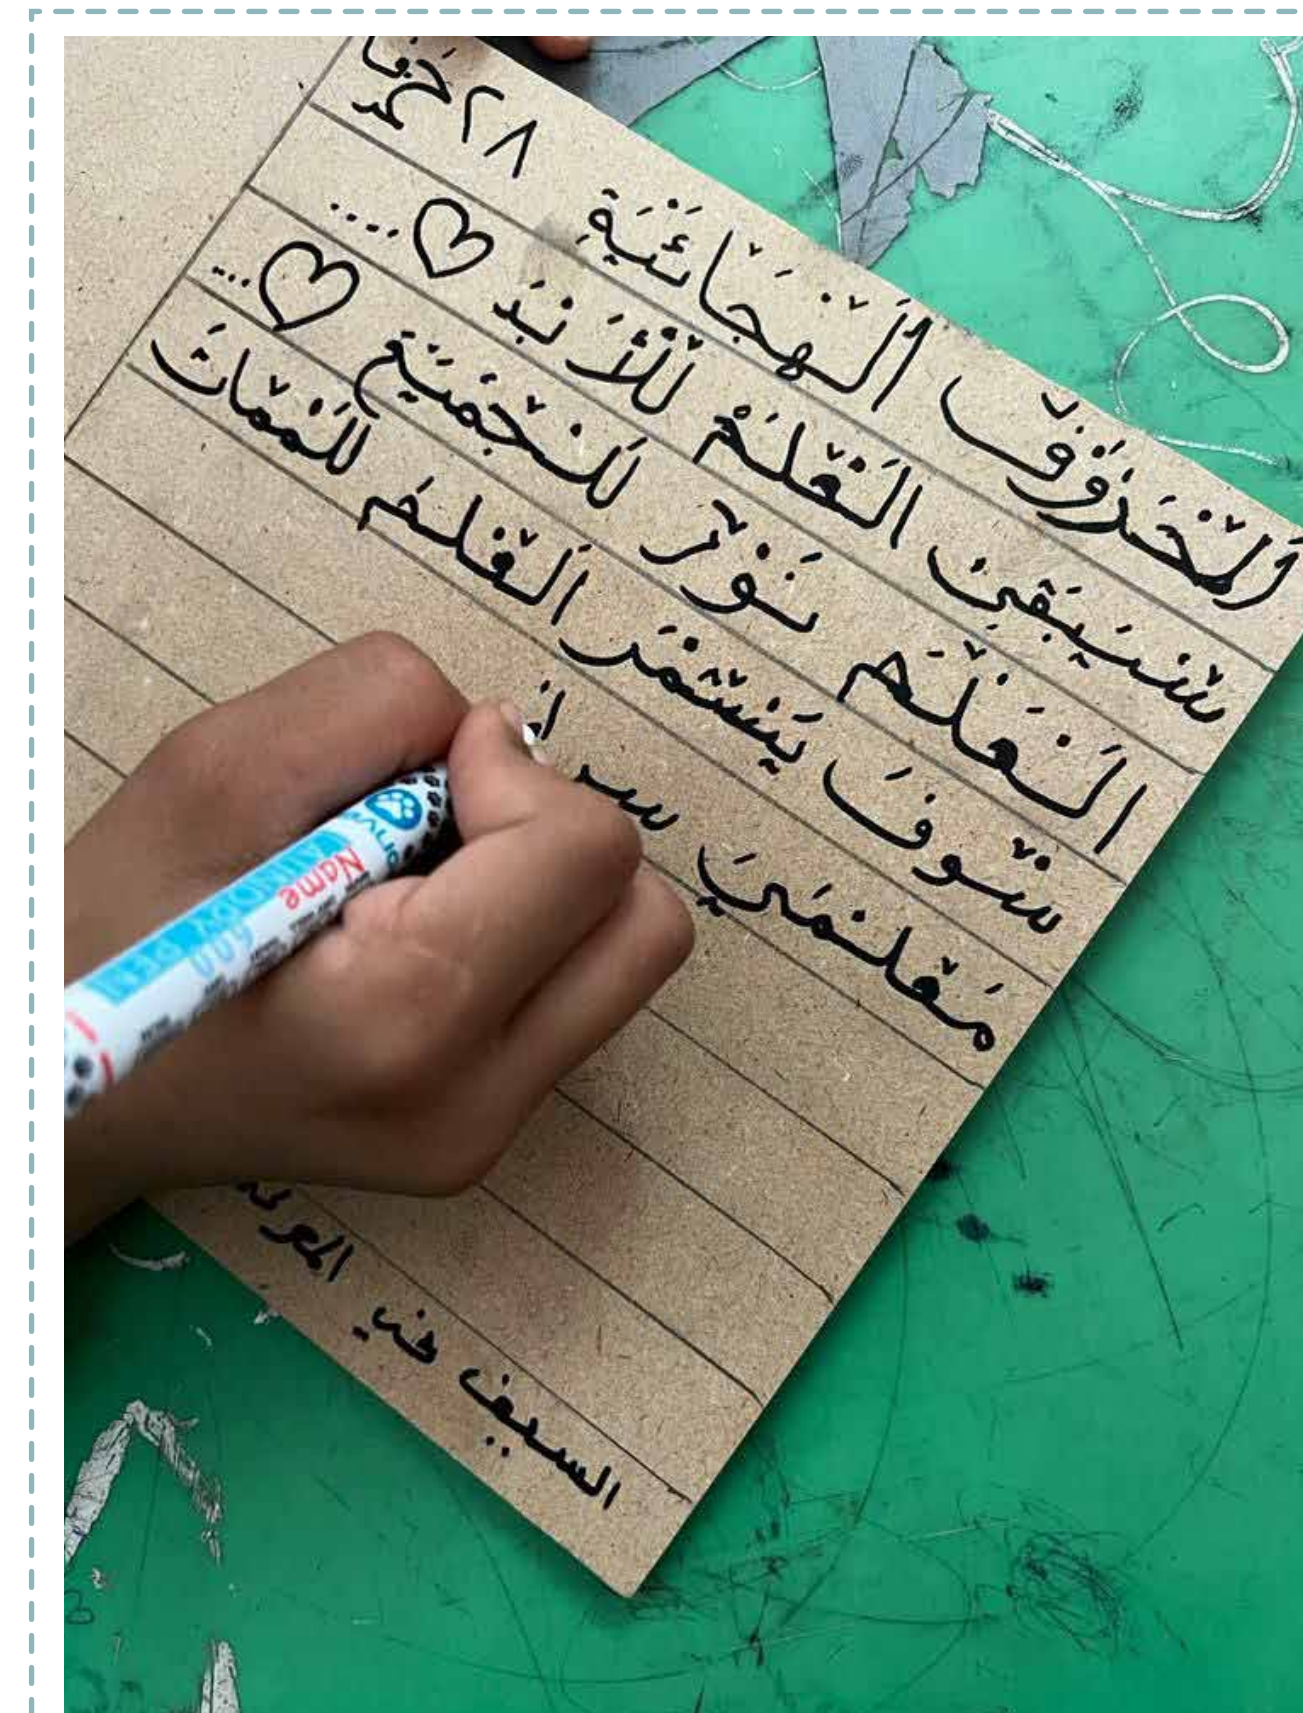 الحروف الهجائية ٢٨ حرفا
سيبقى العلم للأبد ....
العلم نور للجميع ...
سوف يستمر العلم للممات
معلمي سر
السيف في المعركة
Name